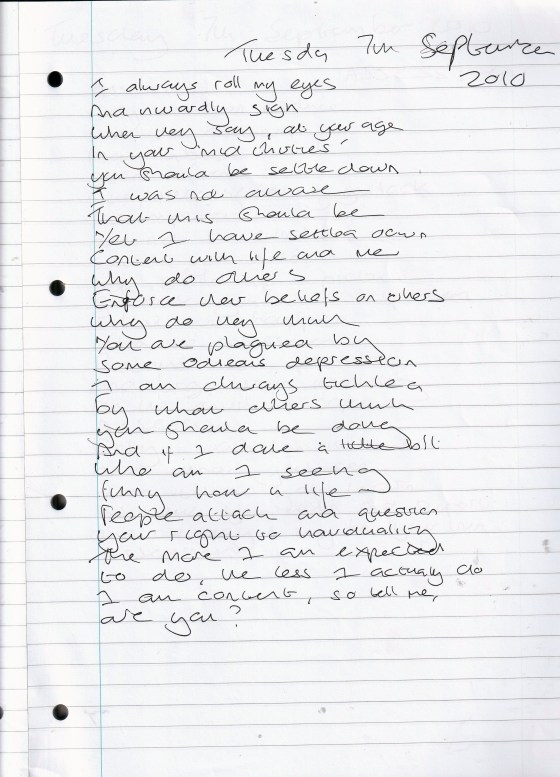 Tuesday 7th September
2010
I always roll my eyes
And inwardly sigh
When they say, at your age
In your 'mid thirties'
you should be settle down
I was not aware
That this should be
Yet I have settled down
Content with life and me
Why do others
Enforce their beliefs on others
Why do they think
You are plagued by
some odieous depression
I am always tickled
by what others think
you should be doing
And if I date a little bit
Who am I seeing
Funny how in life
People attach and question
your right to individuality
The more I am expected
to do, the less I actually do
I am content, so tell me,
are you?